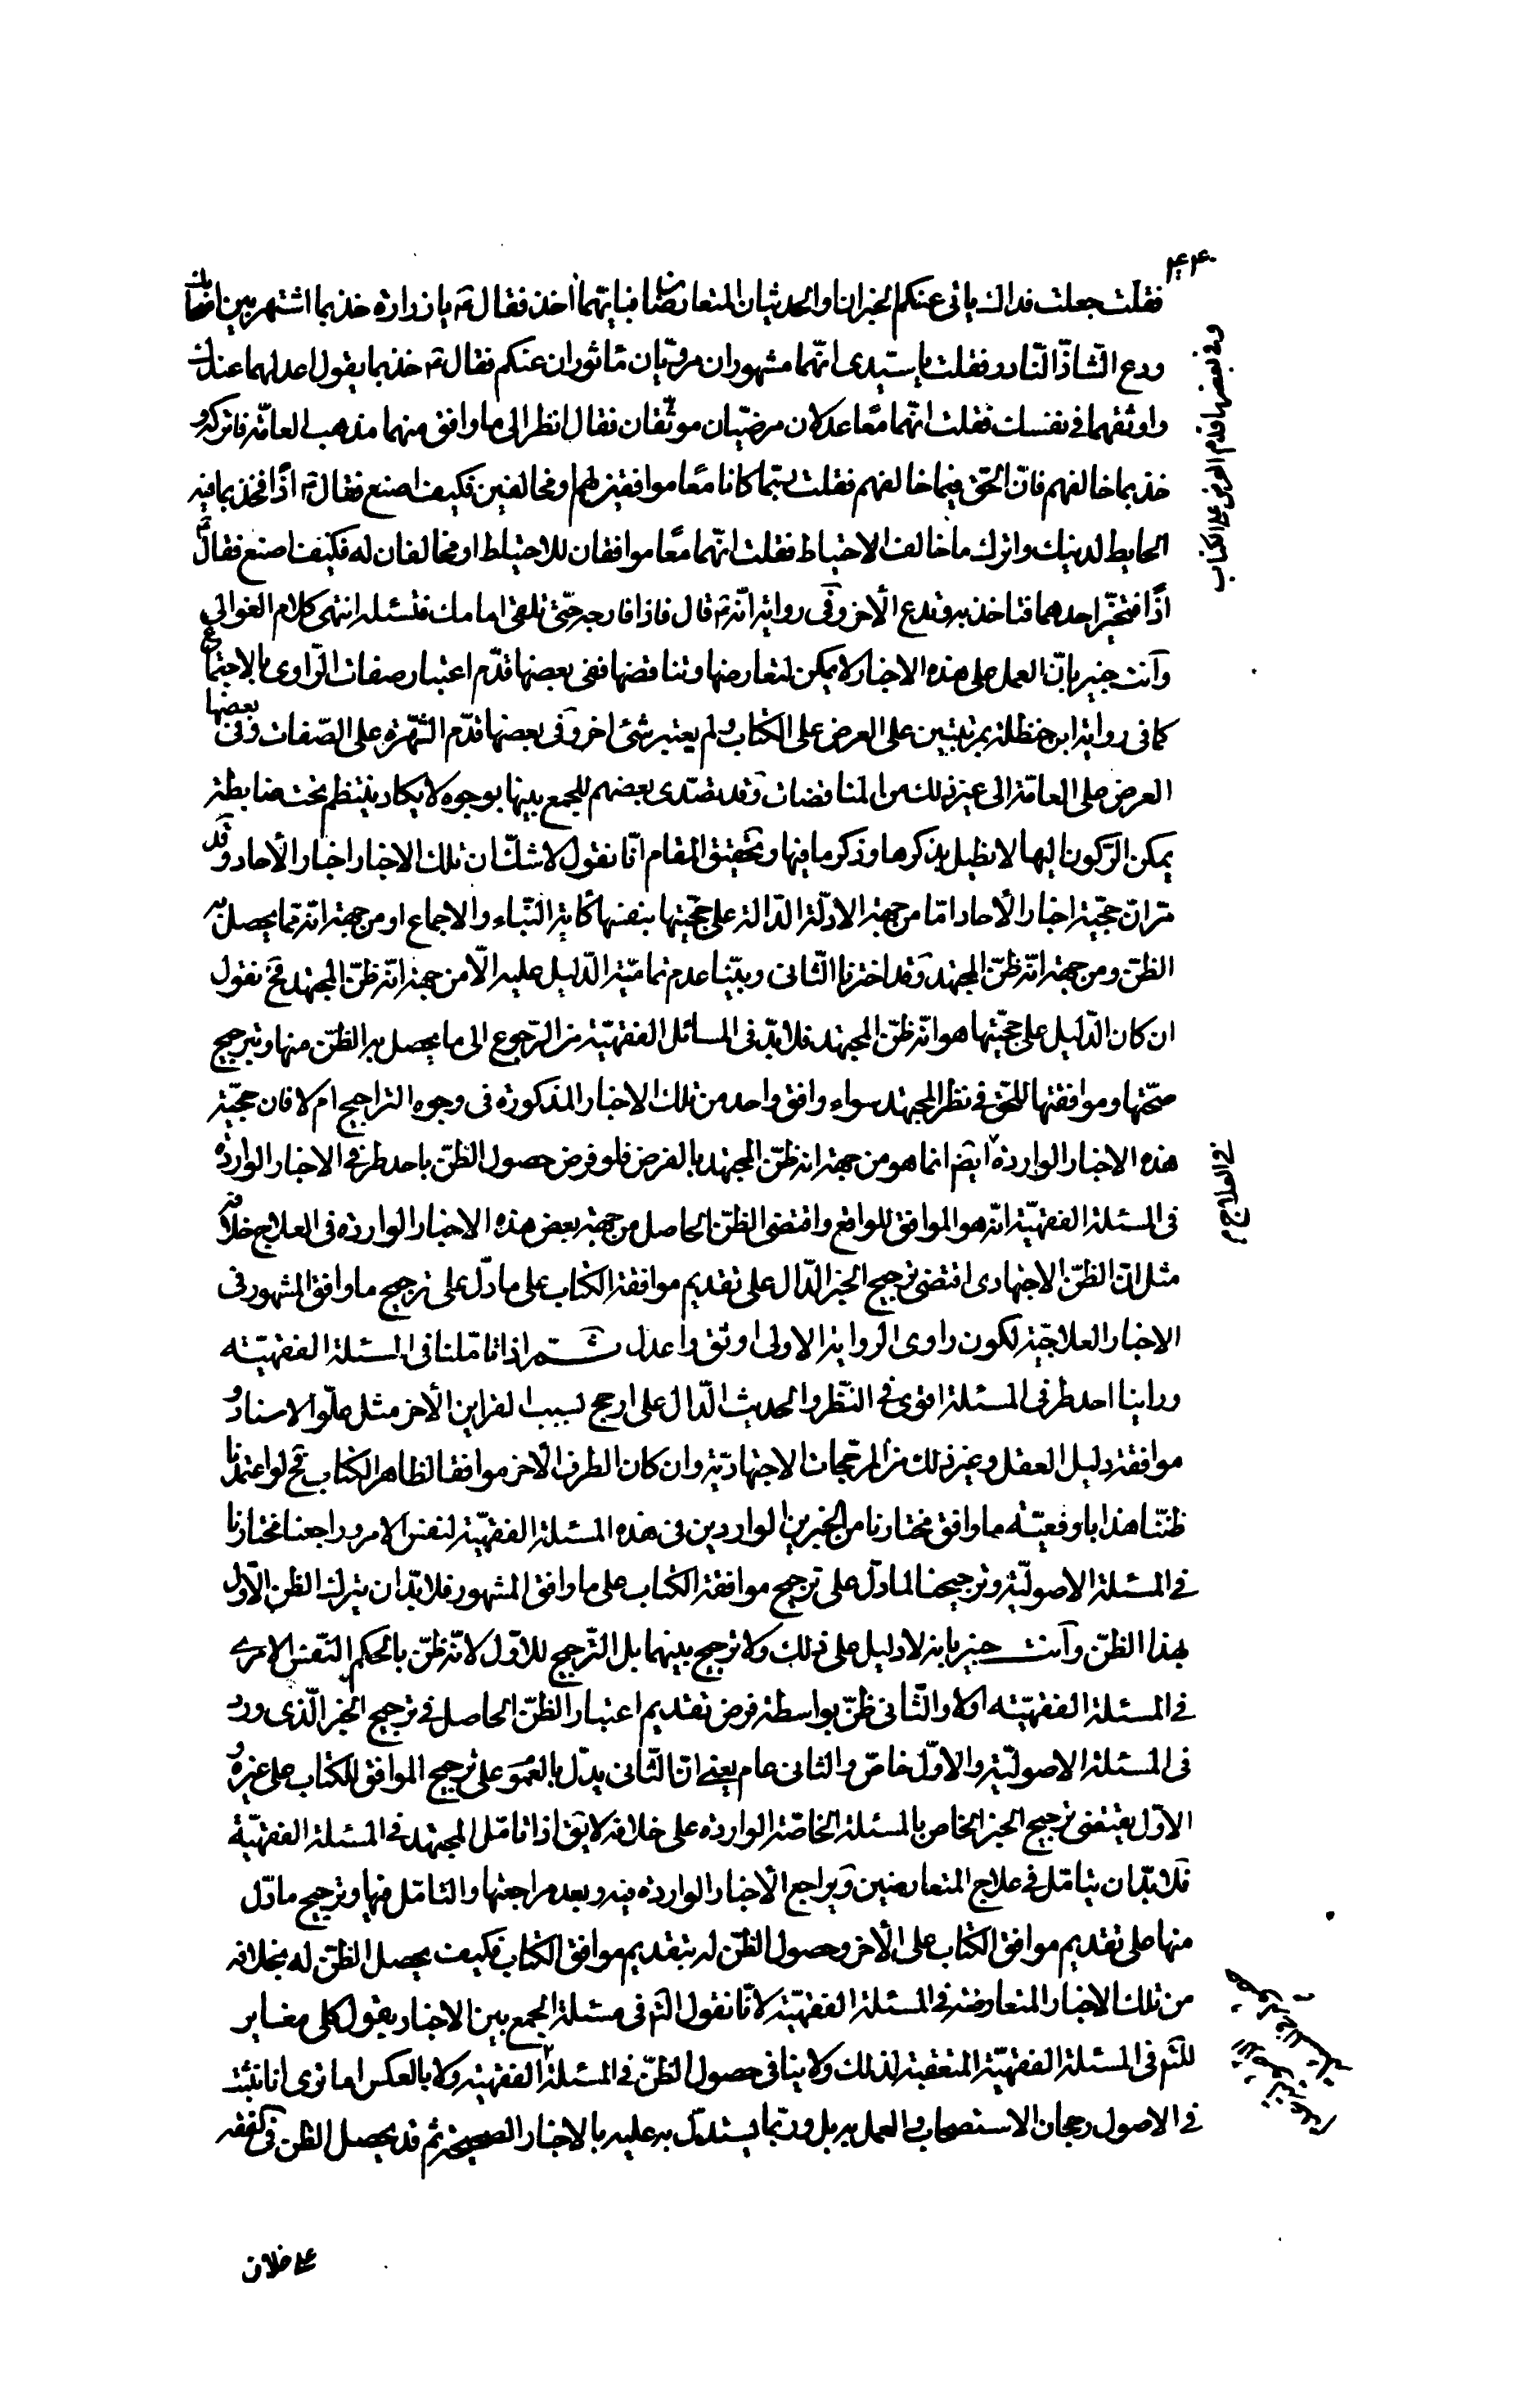 ۴۴۰
فقلت جعلت فداك ياتى عنكم الخبران والحديثان المتعارضان فبايّهما اخذ فقال ع يا زرارة خذ بما اشتهر بين اصحابك
ودع الشّاذّ النّادر فقلت يا سيّدى انّهما مشهوران مرويّان ماثوران عنكم فقال ع خذ بما يقول اعدلهما عندك
واوثقهما فى نفسك فقلت انّهما معًا عدلان مرضيّان موثّقان فقال انظر الى ما وافق منهما مذهب العامّة فاتركه و
خذ بما خالفهم فانّ الحقّ فيما خالفهم فقلت ربّما كانا معًا موافقين لهم او مخالفين فكيف اصنع فقال ع اذًا فخذ بما فيه
الحايطة لدينك واترك ما خالف الاحتياط فقلت انّهما معًا موافقان للاحتياط او مخالفان له فكيف اصنع فقال ع
اذًا فتخيّر احدهما فتاخذ به وتدع الأخر وفى رواية انّه ع قال فاذا فارجه حتّى تلقى امامك فتسئله انتهى كلام الغوالى
وأنت خبير بانّ العمل على هذه الاخبار لا يمكن لتعارضها وتناقضها ففى بعضها قدّم اعتبار صفات الرّاوى بالاجتماع
كما فى رواية ابن حنظلة بمرتبتين على العرض على الكتاب ولم يعتبر شئ اخر وفى بعضها قدّم الشّهرة على الصّفات وفى بعضها
العرض على العامّة الى غير ذلك من المناقضات وقد تصدّى بعضهم للجمع بينها بوجوه لا يكاد ينتظم تحت ضابطة
يمكن الرّكون اليها لا نطيل بذكرها وذكر ما فيها وتحقيق المقام انّا نقول لا شكّ ان تلك الاخبار اخبار الأحاد وقد
مرّ انّ حجّية اخبار الأحاد امّا من جهة الادلّة الدّالة على حجّيتها بنفسها كاية النّباء والاجماع او من جهة انّه ممّا يحصل به
الظنّ ومن جهة انّه ظنّ المجتهد وقد اخترنا الثّانى وبيّنا عدم تماميّة الدّليل عليه الّا من جهة انّه ظنّ المجتهد فح نقول
ان كان الدّليل على حجّيتها هو انّه ظنّ المجتهد فلا بدّ فى المسائل الفقهيّة من الرّجوع الى ما يحصل به الظنّ منها وترجيح
صحّتها وموافقتها للحقّ فى نظر المجتهد سواء وافق واحد من تلك الاخبار المذكورة فى وجوه التراجيح ام لا فان حجّية
هذه الاخبار الواردة ايضا انما هو من جهة انه ظنّ المجتهد بالفرض فلو فرض حصول الظنّ باحد طرفى الاخبار الواردة
فى المسئلة الفقهيّة انّه هو الموافق للواقع واقتضى الظنّ الحاصل من جهة بعض هذه الاخبار الواردة فى العلاج خلافه
مثل انّ الظنّ الاجتهادى اقتضى ترجيح الخبر الدّال على تقديم موافقة الكتاب على ما دلّ على ترجيح ما وافق المشهور فى
الاخبار العلاجيّة لكون راوى الرواية الاولى اوثق واعدل ثم اذا تامّلنا فى المسئلة الفقهيّة
وراينا احد طرفى المسئلة اقوى فى النّظر والحديث الدّال على ارجح بسبب القراين الأخر مثل علوّ الاسناد و
موافقة دليل العقل وغير ذلك من المرجّحات الاجتهاديّة وان كان الطرف الأخر موافقا لظاهر الكتاب فح لو اعتمدنا
ظنّنا هذا باوقعيّة ما وافق مختارنا من الخبرين الواردين فى هذه المسئلة الفقهيّة لنفس الامر وراجعنا مختارنا
فى المسئلة الاصوليّة وترجيحنا لما دلّ على ترجيح موافقة الكتاب على ما وافق المشهور فلا بدّ ان يترك الظن الاوّل
بهذا الظنّ وأنت خبير بانه لا دليل على ذلك ولا ترجيح بينهما بل التّرجيح للاوّل لانّه ظنّ بالحكم النّفس الامرى
فى المسئلة الفقهيّة اولا والثّانى ظنّ بواسطة فرض تقديم اعتبار الظنّ الحاصل فى ترجيح الخبر الّذى ورد
فى المسئلة الاصوليّة والاوّل خاصّ والثانى عام يعنى انّ الثّانى يدلّ بالعموم على ترجيح الموافق للكتاب على غيره و
الاوّل يقتضى ترجيح الخبر الخاص بالمسئلة الخاصّة الواردة على خلافه لا يق اذا تامّل المجتهد فى المسئلة الفقهيّة
فلا بدّ ان يتامّل فى علاج المتعارضين ويراجع الأخبار الواردة فيه وبعد مراجعتها والتامّل فيها وترجيح ما دلّ
منها على تقديم موافق الكتاب على الأخر وحصول الظنّ له بتقديم موافق الكتاب فكيف يحصل الظنّ له بخلافه
من تلك الاخبار المتعارضة فى المسئلة الفقهيّة لانّا نقول التم فى مسئلة الجمع بين الاخبار بقول كلى مغاير
للتم فى المسئلة الفقهيّة المتعقبة لذلك ولا ينافى حصول الظنّ فى المسئلة الفقهيّة ولا بالعكس اما ترى انا نثبت
فى الاصول رجحان الاستصحاب والعمل به بل وربّما يستدلّ به عليه بالاخبار الصحيحة ثم قد يحصل الظن فى الفقه
على خلاف
وفى بعضها قدم العرض على الكتاب
فى العلاج م